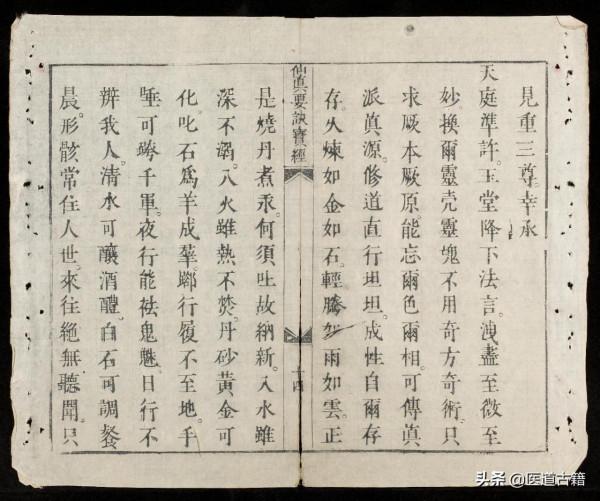 見重三尊。幸承
天庭準許。玉堂降下法言。洩盡至微至
妙換爾靈壳靈塊不用奇方奇術。只
求厥本厥原。能忘爾色爾相。可傳眞
派眞源。修道直行坦坦。成性自爾存
存。火煉如金如石。輕騰如雨如雲。正
仙眞要訣寶經
十四
是燒丹煮汞。何須吐故納新。入水雖
深不溺。入火雖熱不焚。丹砂黃金可
化。叱石爲羊成羣。鄕行履不至地。手
唾可跨千軍。夜行能祛鬼魅。日行不
辨我人。清水可釀酒醴。白石可調餐
晨。形骸常住人世。來往絕無聽聞。只
头条@医道古籍